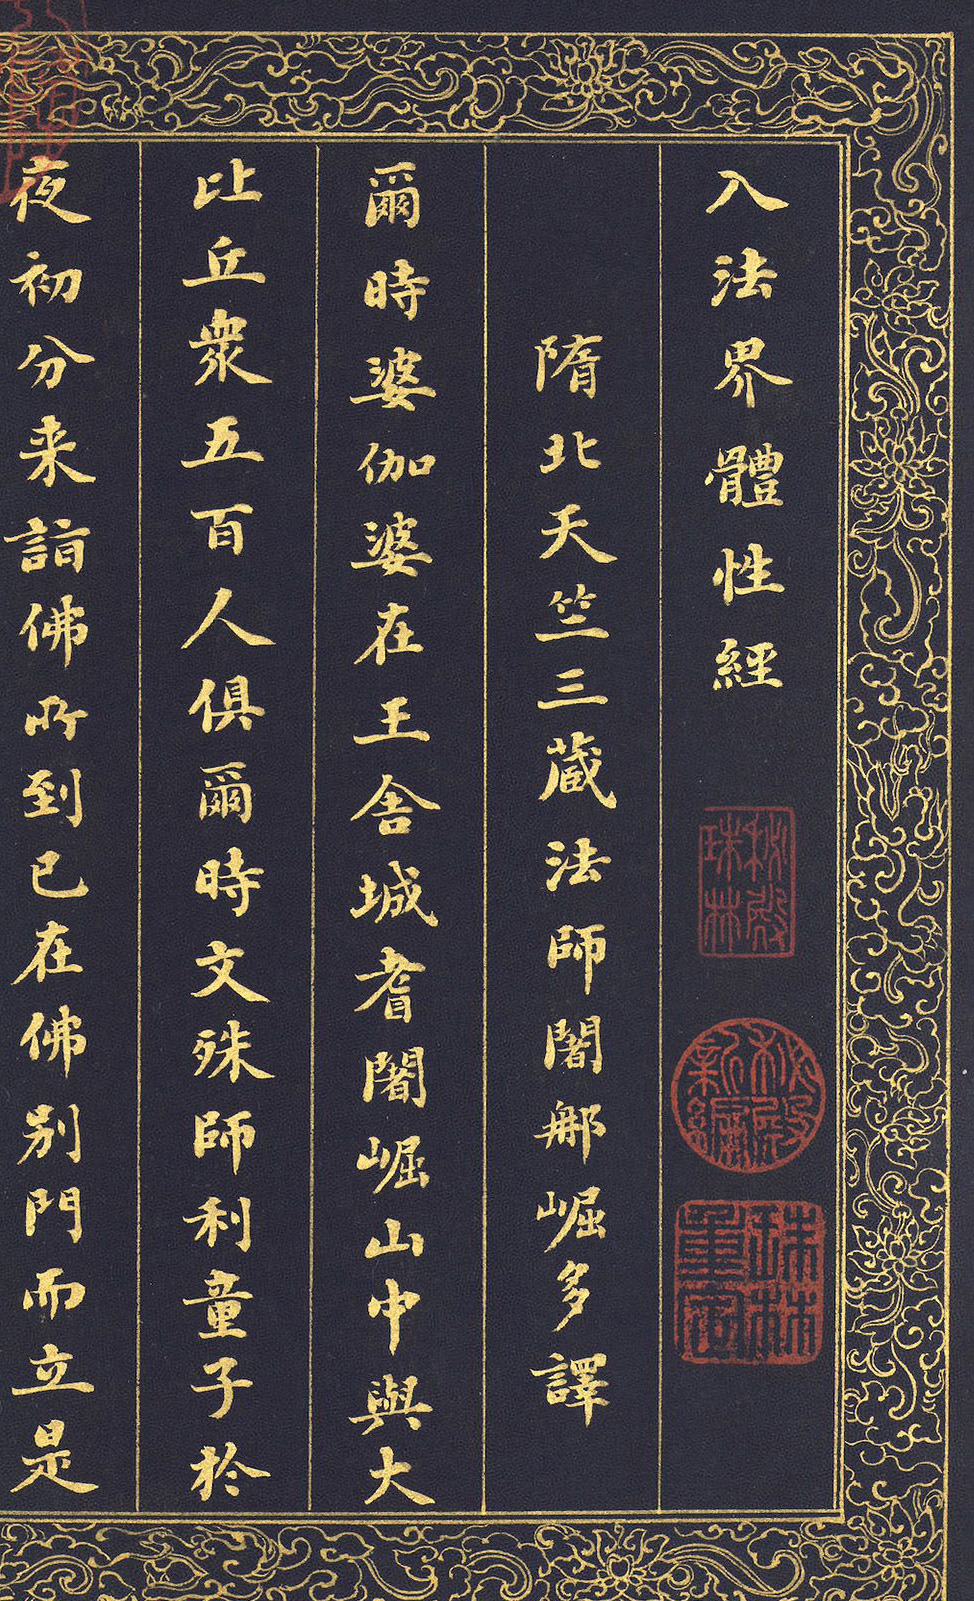 入法界體性經
隋北天竺三蔵法師闍那崛多譯
爾時婆伽婆在王舍城耆闍崛山中與大
比丘衆五百人俱爾時文殊師利童子於
夜初分来詣佛所到已在佛別門而立是
秘殿珠林
秘殿新編
珠林重定